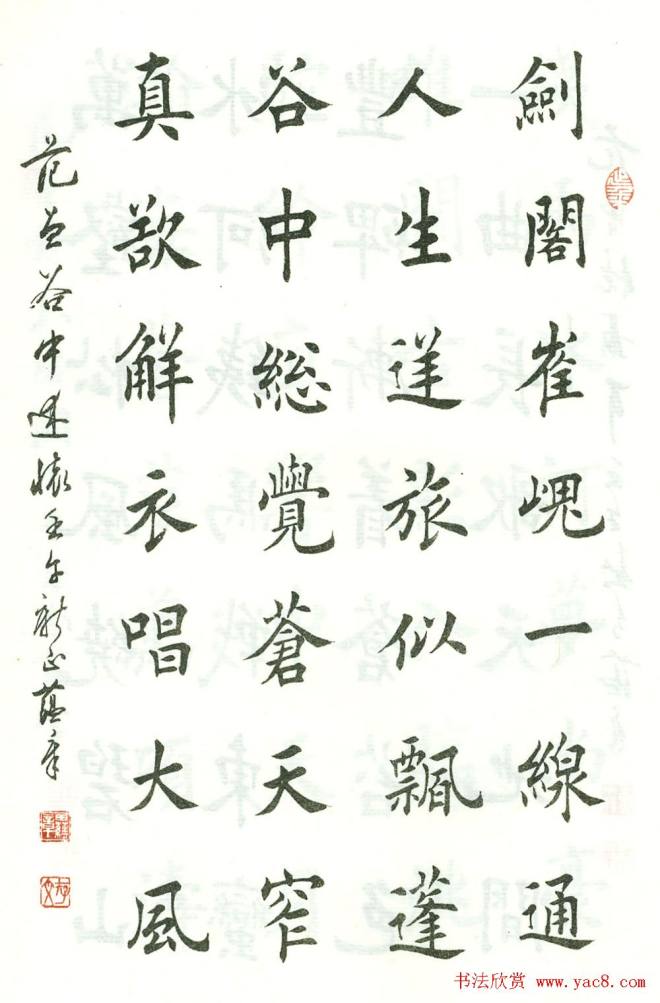 劍閣崔嵬一線通
人生逆旅似飄蓬
谷中總覺蒼天窄
真欲解衣唱大風
范告谷中述懷壬午新正蘊章
书法欣赏 www.yac8.com